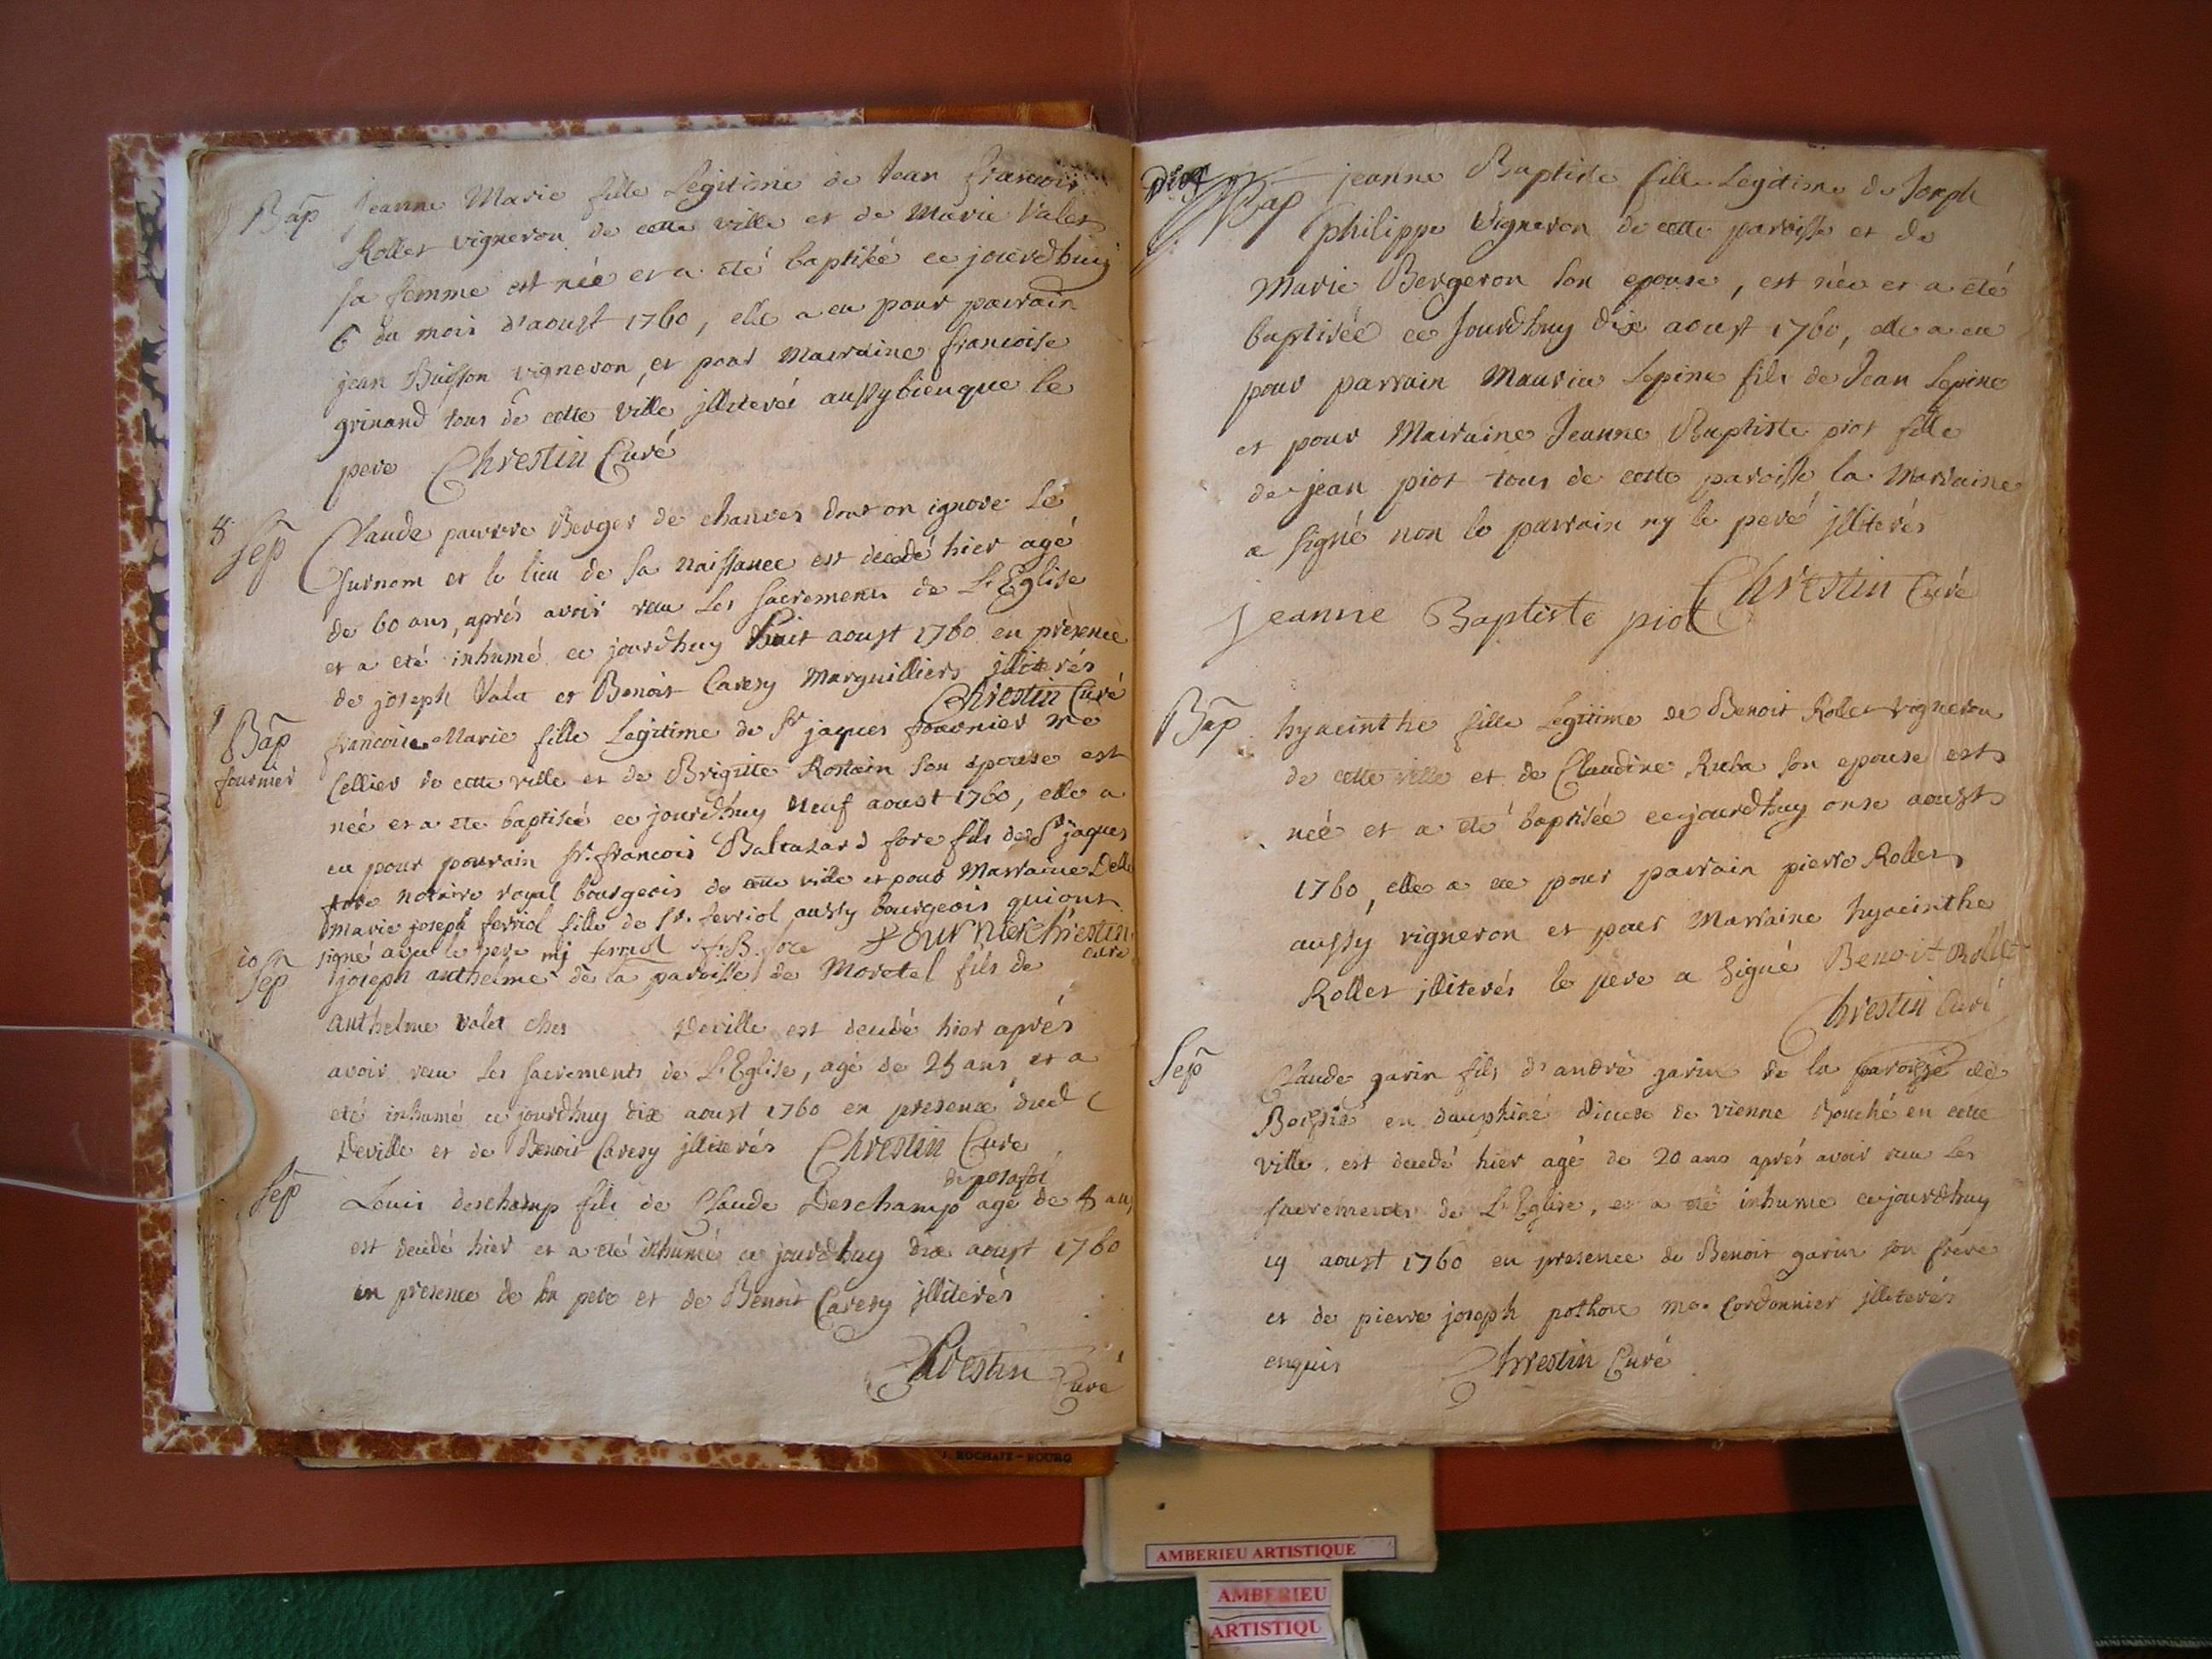 Bap Jeanne Marie fille Legitime de Jean francois
Rollet vigneron de cette ville et de Marie Valet
sa femme est née et a eté baptisée ce jourdhuy
6 du mois d'aoust 1760, elle a eu pour parrain
jean Buisson vigneron, et pour Marraine francoise
grinand tous de cette ville jlliterés aussy bien que le
pere Chrestin Curé
8 Sep Claude pauvre Berger de chanves dont on ignore le
surnom et le lieu de sa naissance est decedé hier agé
de 60 ans, aprés avoir recu les sacrements de L'Eglise
et a eté inhumé ce jourdhuy huit aoust 1760 en presence
de joseph Vala et Benoit Caresy Marguilliers jlliterés
Chrestin Curé
9 Bap francoise Marie fille Legitime de Sr jaques fournier me
fournier Cellier de cette ville et de Brigitte Rostain son epouse est
née et a ete baptisée ce jourdhuy neuf aoust 1760, elle a
eu pour parrain sr. francois Baltazard fore fils de Sr jaques
fore notaire royal bourgeois de cette ville et pour Marraine Delle
Marie joseph ferriol fille de sr. ferriol aussy bourgeois qui ont
signé avec le pere mj ferriol f. B. fore fournier Chrestin
curé
10 Sep joseph anthelme de la paroisse de Moretel fils de
anthelme valet ches Deville est decedé hier aprés
avoir recu les sacrements de L'Eglise, agé de 25 ans, et a
eté inhumé ce jourdhuy dix aoust 1760 en presence dud
Deville et de Benoit Caresy jlliterés Chrestin Curé
Sep Louis deschamp fils de Claude Deschamp agé de 8 ans
est decedé hier et a eté inhumé ce jourdhuy dix aoust 1760
en presence de son pere et de Benoit Caresy jlliterés
Chrestin Curé
piot
Bap jeanne Baptiste fille Legitime de Joseph
philippe Vigneron de cette paroisse et de
Marie Bergeron son epouse, est née et a eté
baptisée ce Jourdhuy dix aoust 1760, elle a eu
pour parrain Maurice Lepine fils de Jean Lepine
et pour Marraine Jeanne Baptiste piot fille
de jean piot tous de cette paroisse la Marraine
a signé non le parrain ny le pere jlliterés
Chrestin Curé
jeanne Baptiste piot
Bap hyacinthe fille Legitime de Benoit Rollet vigneron
de cette ville et de Claudine Ruba son epouse est
née et a eté baptisée cejourdhuy onse aoust
1760, elle a eu pour parrain pierre Rollet
aussy vigneron et pour Marraine hyacinthe
Rollet jlliterés le pere a signé Benoit Rollet
Chrestin Curé
Sep Claude garin fils d'andré garin de la paroisse de
en dauphiné diocese de Vienne Bouché en cette
ville, est decedé hier agé de 20 ans aprés avoir recu les
sacrements de L'Eglise, et a eté inhume cejourdhuy
19 aoust 1760 en presence de Benoit garin son frere
et de pierre joseph pothon me. Cordonnier jlliterés
enquis Chrestin Curé
J. ROCHAIX - BOURG
AMBERIEU ARTISTIQUE
AMBERIEU
ARTISTIQU